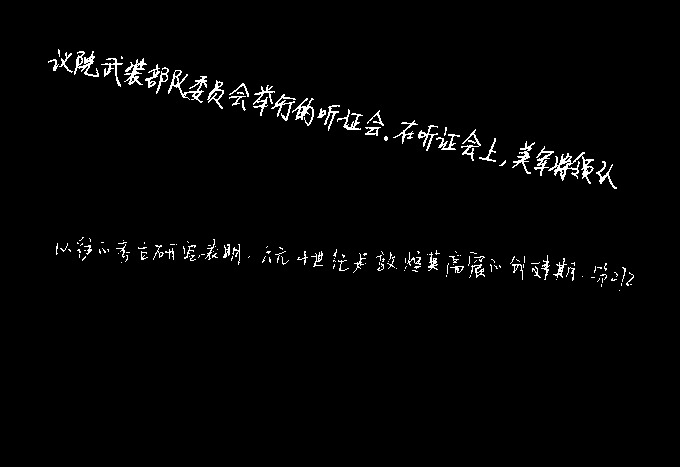 议院武装部队委员会举行的听证会.在听证会上,美军将领认
以往的考古研究表明.公元4世纪是敦煌莫高窟的创建期.第272